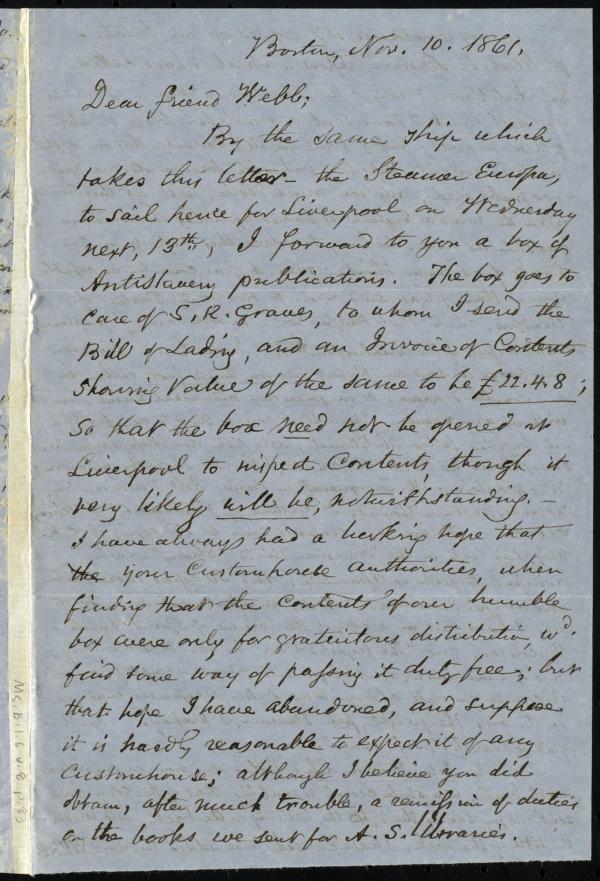 Boston, Nov. 10. 1861.
Dear friend Webb;
By the same ship which
takes this letter - the Steamer Europa,
to sail hence for Liverpool on Wednesday
next, 13th, I forward to you a box of
Antislavery publications. The box goes to
care of S. R. Graves, to whom I send the
Bill of Lading, and an Invoice of Contents
showing Value of the same to be £22.4.8;
So that the box need not be opened at
Liverpool to inspect Contents, though it
very likely will be, notwithstanding. -
I have always had a lurking hope that
the your Customhouse authorities, when
finding that the contents of our humble
box were only for gratuitous distribution, wd.
find some way of passing it duty free; but
that hope I have abandoned, and suppose
it is hardly reasonable to expect it of any
Customhouse; although I believe you did
obtain, after much trouble, a remission of duties
on the books we sent for A. S. libraries.
Ms. B. 1. 6 v. 8. p. 83